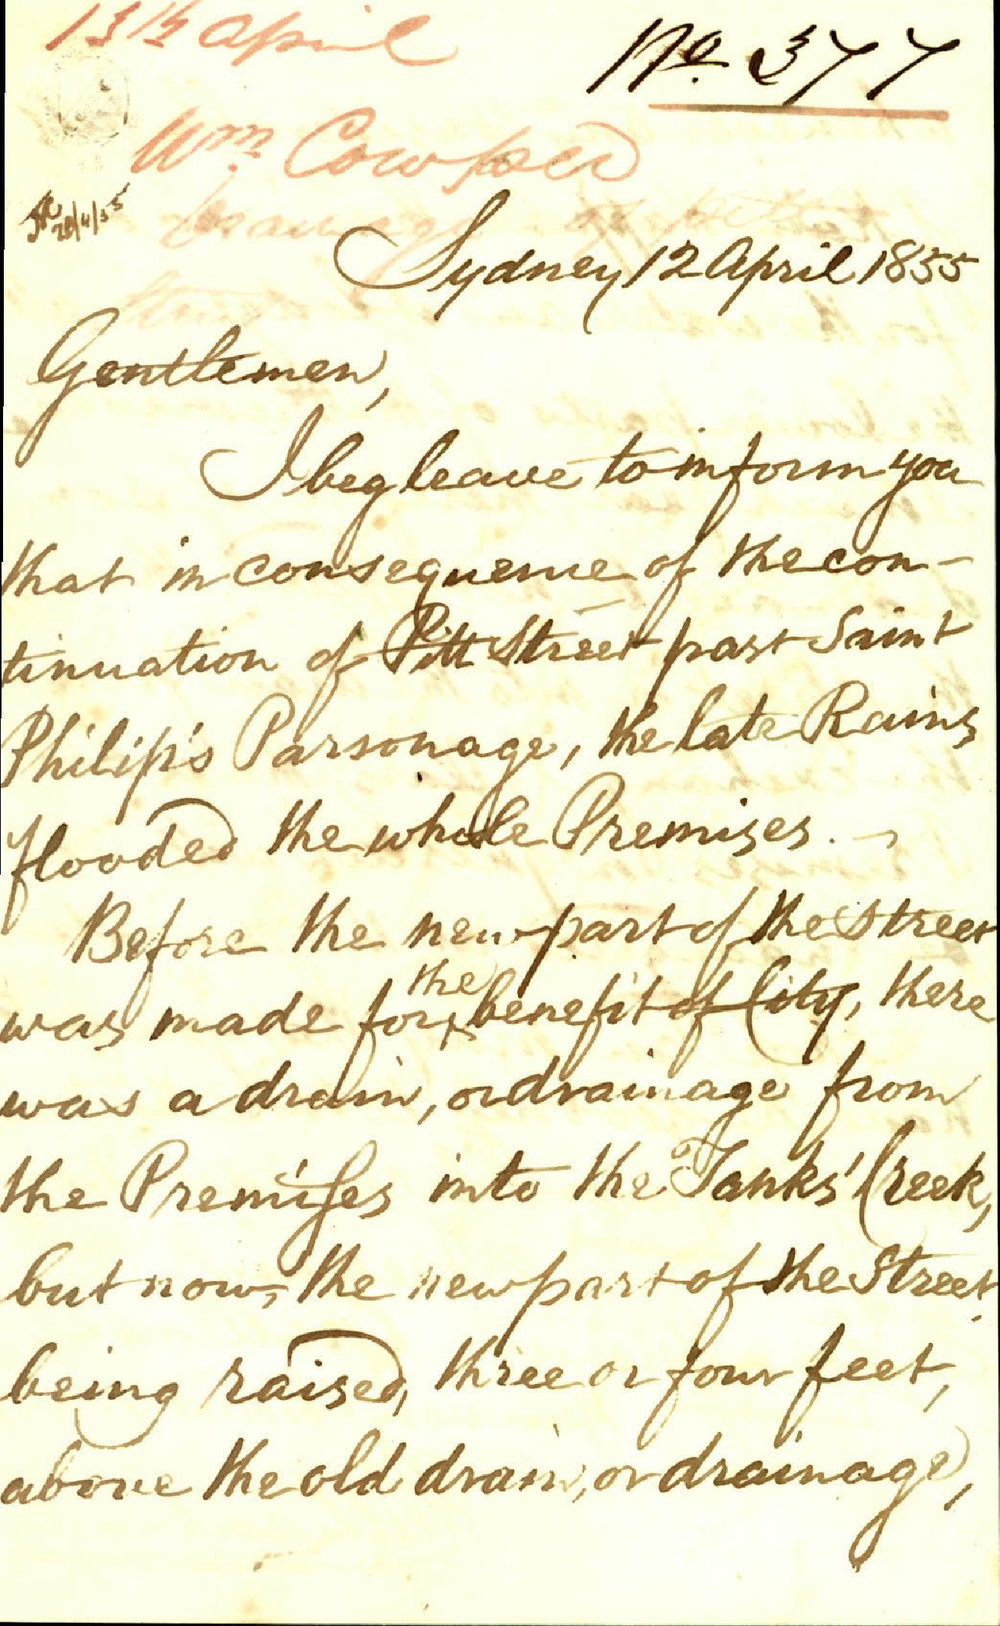 13th April
No. 377
Wm. Cowper
28/4/55
Sydney 12 April 1855
Gentlemen,
I beg leave to inform you
that in consequence of the con-
tinuation of Pitt Street past Saint
Philip's Parsonage, the late Rains
flooded the whole Premises. -
Before the new part of the Street
was made for the benefit of City, there
was a drain, or drainage from
the Premises into the Tanks' Creek,
but now, the new part of the Street
being raised, three or four feet,
above the old drain, or drainage,